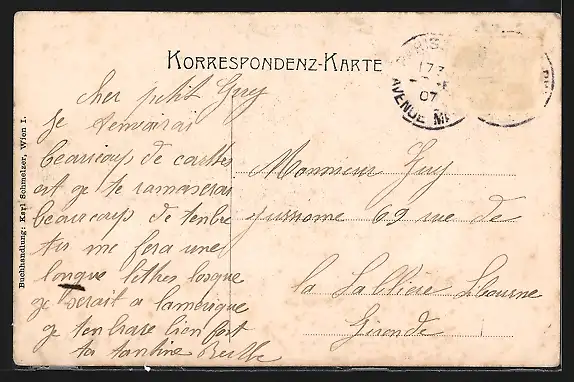 KORRESPONDENZ-KARTE
PARIS
17
07
AVENUE
Buchhandlung: Karl Schmelzer, Wien I.
cher petit Guy
je tenverai
beaucoup de carttes
est ge te ramaserai
beaucoup de tenbre
tu me fera une
longue lettres losque
ge serait a lamerique
ge tenbrase bien fort
ta tantine Berthe
Monsieur Guy
69 rue de
la Sablière Libourne
Gironde